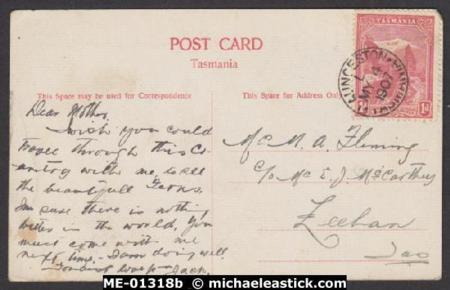 POST CARD
Tasmania
TASMANIA
This Space may be used for Correspondence
This Space for Address Only
Dear Mother,
wish you could
travel through this Co
untry with me to see
the beautifull
Im sure there is nothing
better in the world. You
must come with me
next time. I am doing well
fondest love from Jack.
McM. A. Fleming
C/o Mc E. J. McCarthy
Zeehan
Tas
ME-01318b © michaeleastick.com